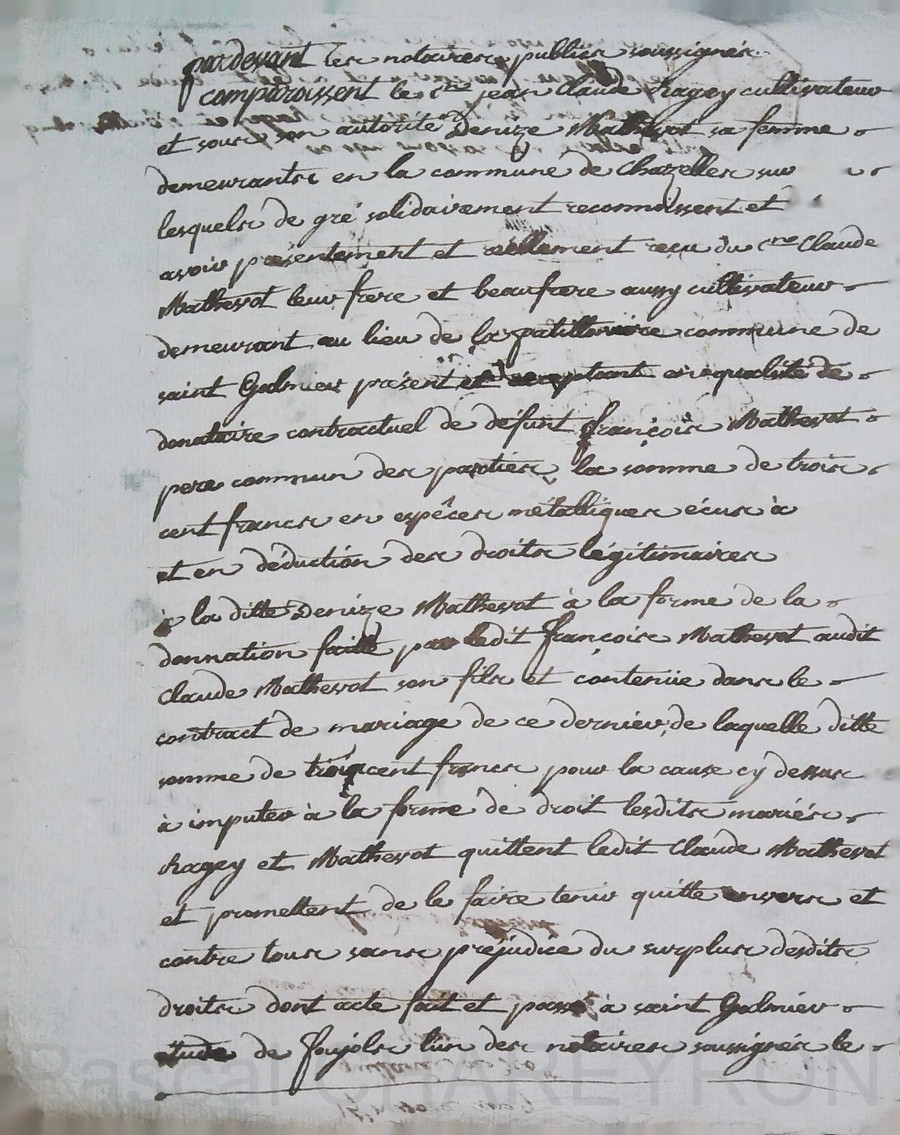 pardevant les notaires publics soussignés
comparoissent le c.ne jean Claude Ragey cultivateur
et sous son autorité Denize Mathevot sa femme
demeurants en la commune de Chazelles sur
lesquels de gré solidairement reconnoissent et
avoir présentement et réellement reçu du c.ne Claude
Mathevot leur frere et beaufrere aussy cultivateur
demeurant au lieu de la commune de
saint Galmier présent et acceptant en qualité de
donataire contractuel de defunt françois Mathevot
pere commun des parties la somme de trois
cent francs en espêces métalliques écus à
et en déduction des droits légitimaires
à la ditte Denize Mathevot à la forme de la
donnation faitte par ledit françois Mathevot audit
Claude Mathevot son fils et contenüe dans le
contract de mariage de ce dernier, de laquelle ditte
somme de trois cent francs pour la cause cy dessus
à imputer à la forme de droit lesdits mariés
Ragey et Mathevot quittent ledit Claude Mathevot
et promettent de le faire tenir quitte envers et
contre tous sans préjudice du surplus desdits
droits dont acte fait et passé à saint Galmier
étude de foujols l'un des notaires soussignés le
Pascal CHAREYRON